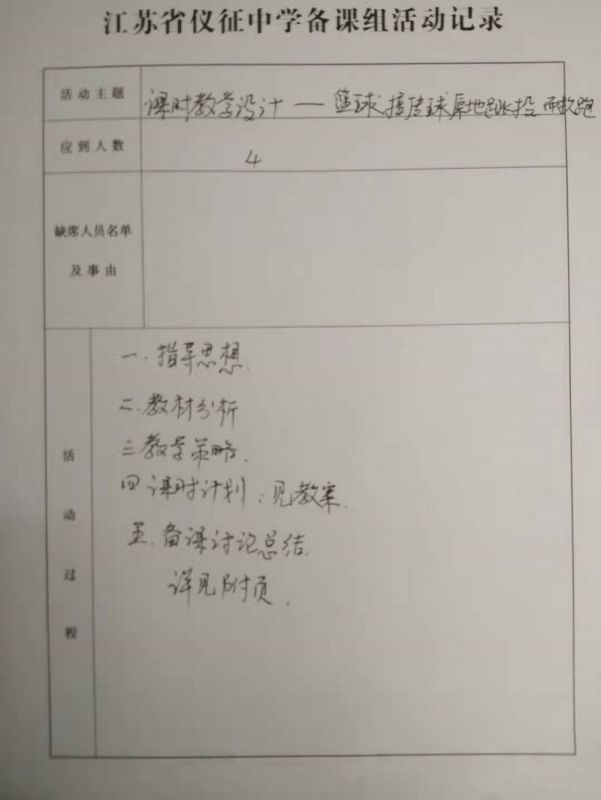 江苏省仪征中学备课组活动记录
活动主题 课时教学设计 — 篮球接传球原地跳投 耐久跑
应到人数 4
缺席人员名单
及事由
活动过程
一.指导思想.
二.教材分析
三教学策略.
四课时计划:见教案.
五.备课讨论总结.
详见附页.